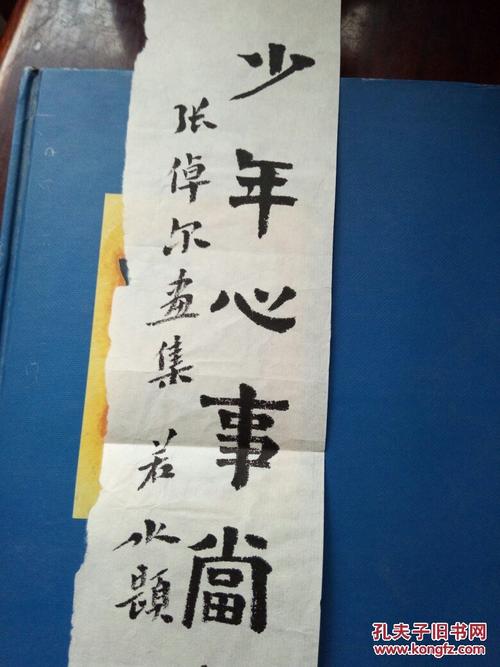 少年心事當
张倬尔画集 若水題
孔夫子旧书网
www.kongfz.com